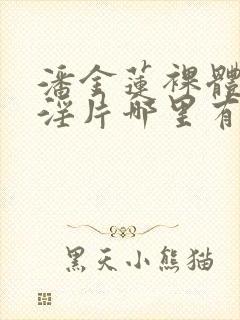 潘金蓮裸體
淫片哪里有
黑天小熊猫